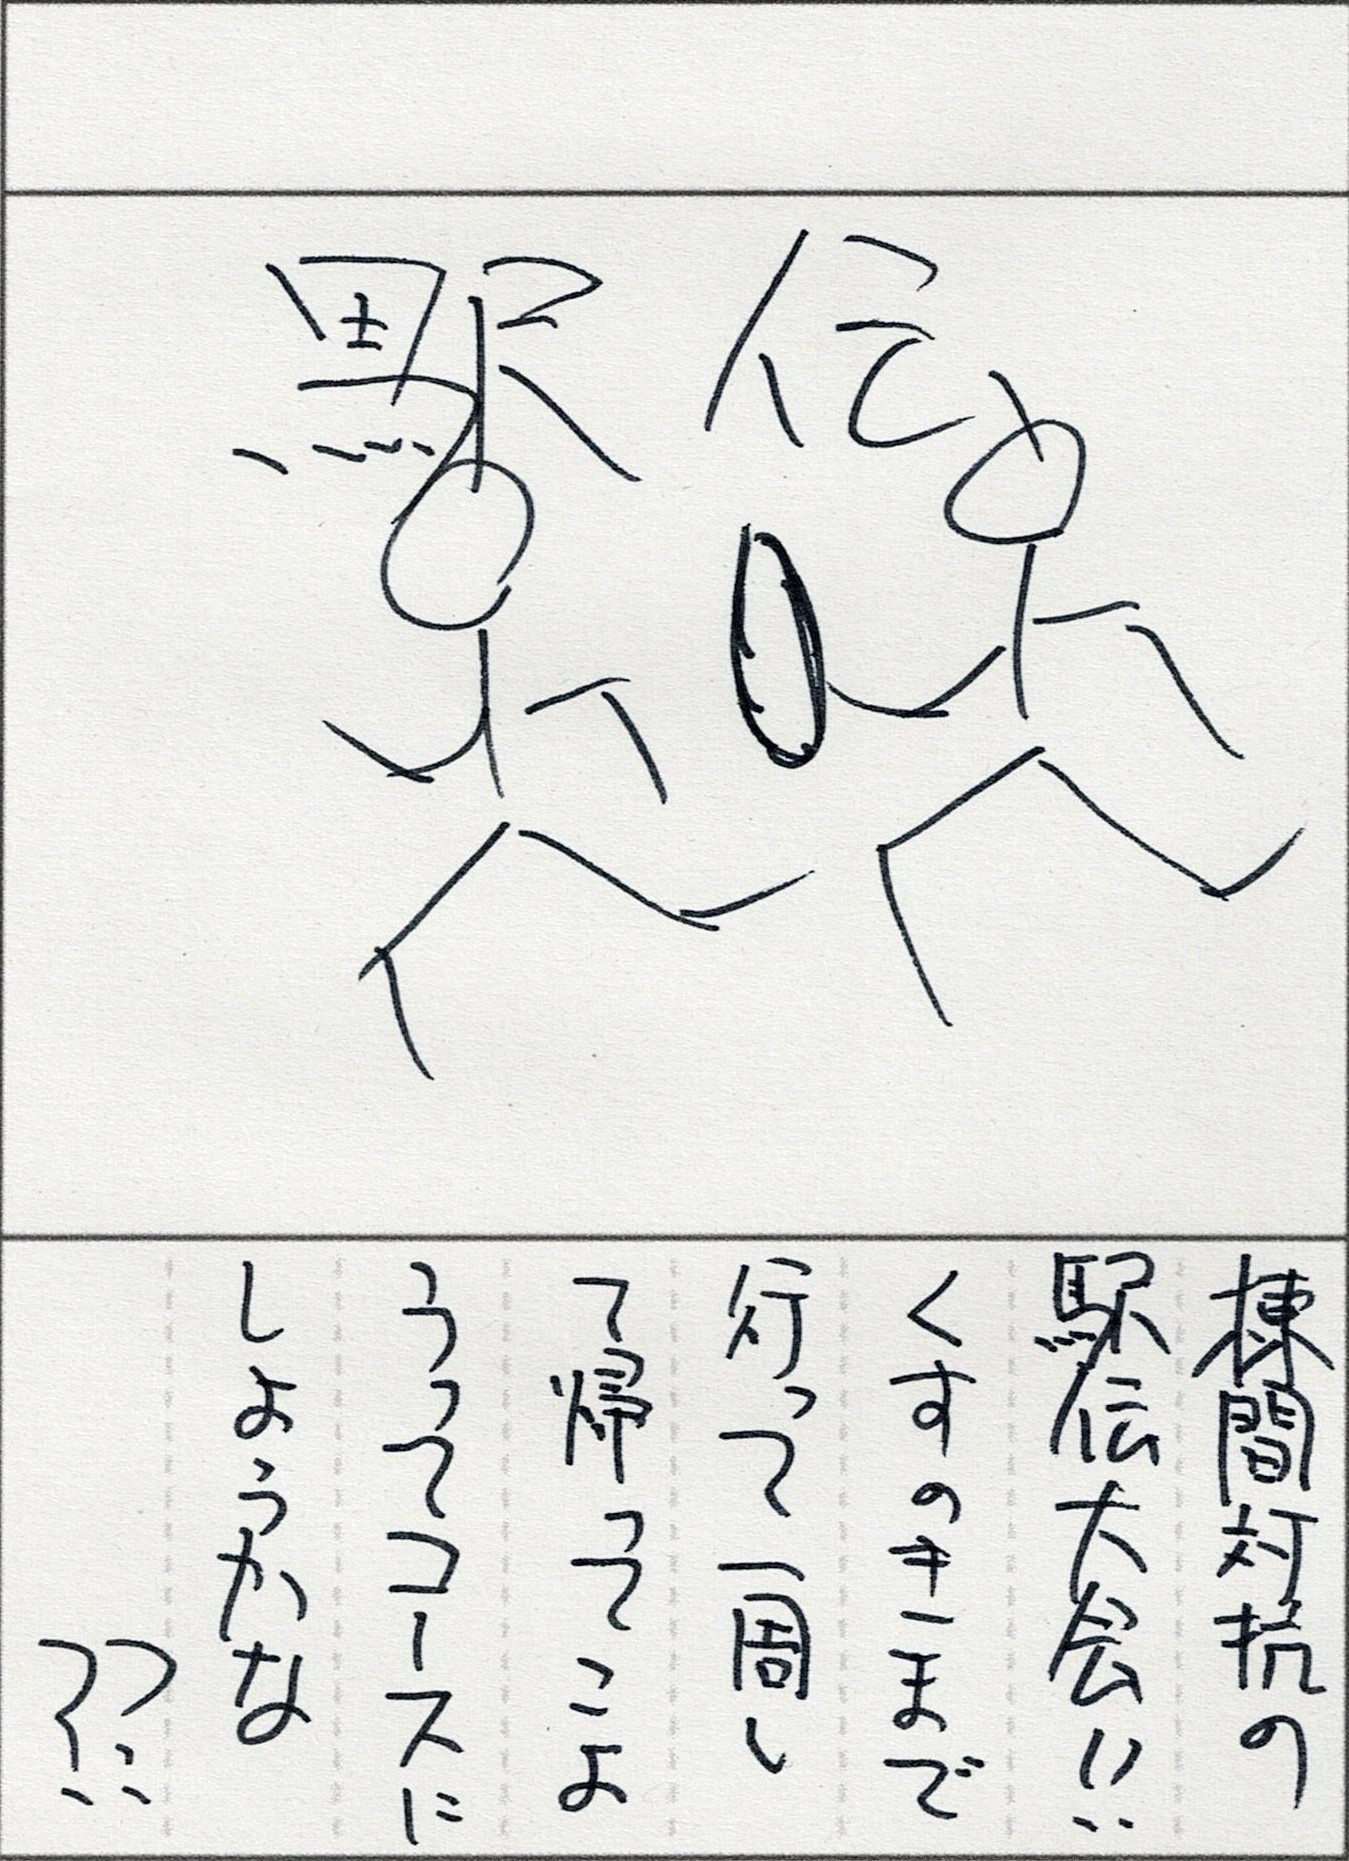 駅伝
棟間対抗の
駅伝大会!!
くすのきまで
行って一周し
て帰ってこよ
うってコースに
しようかな
??